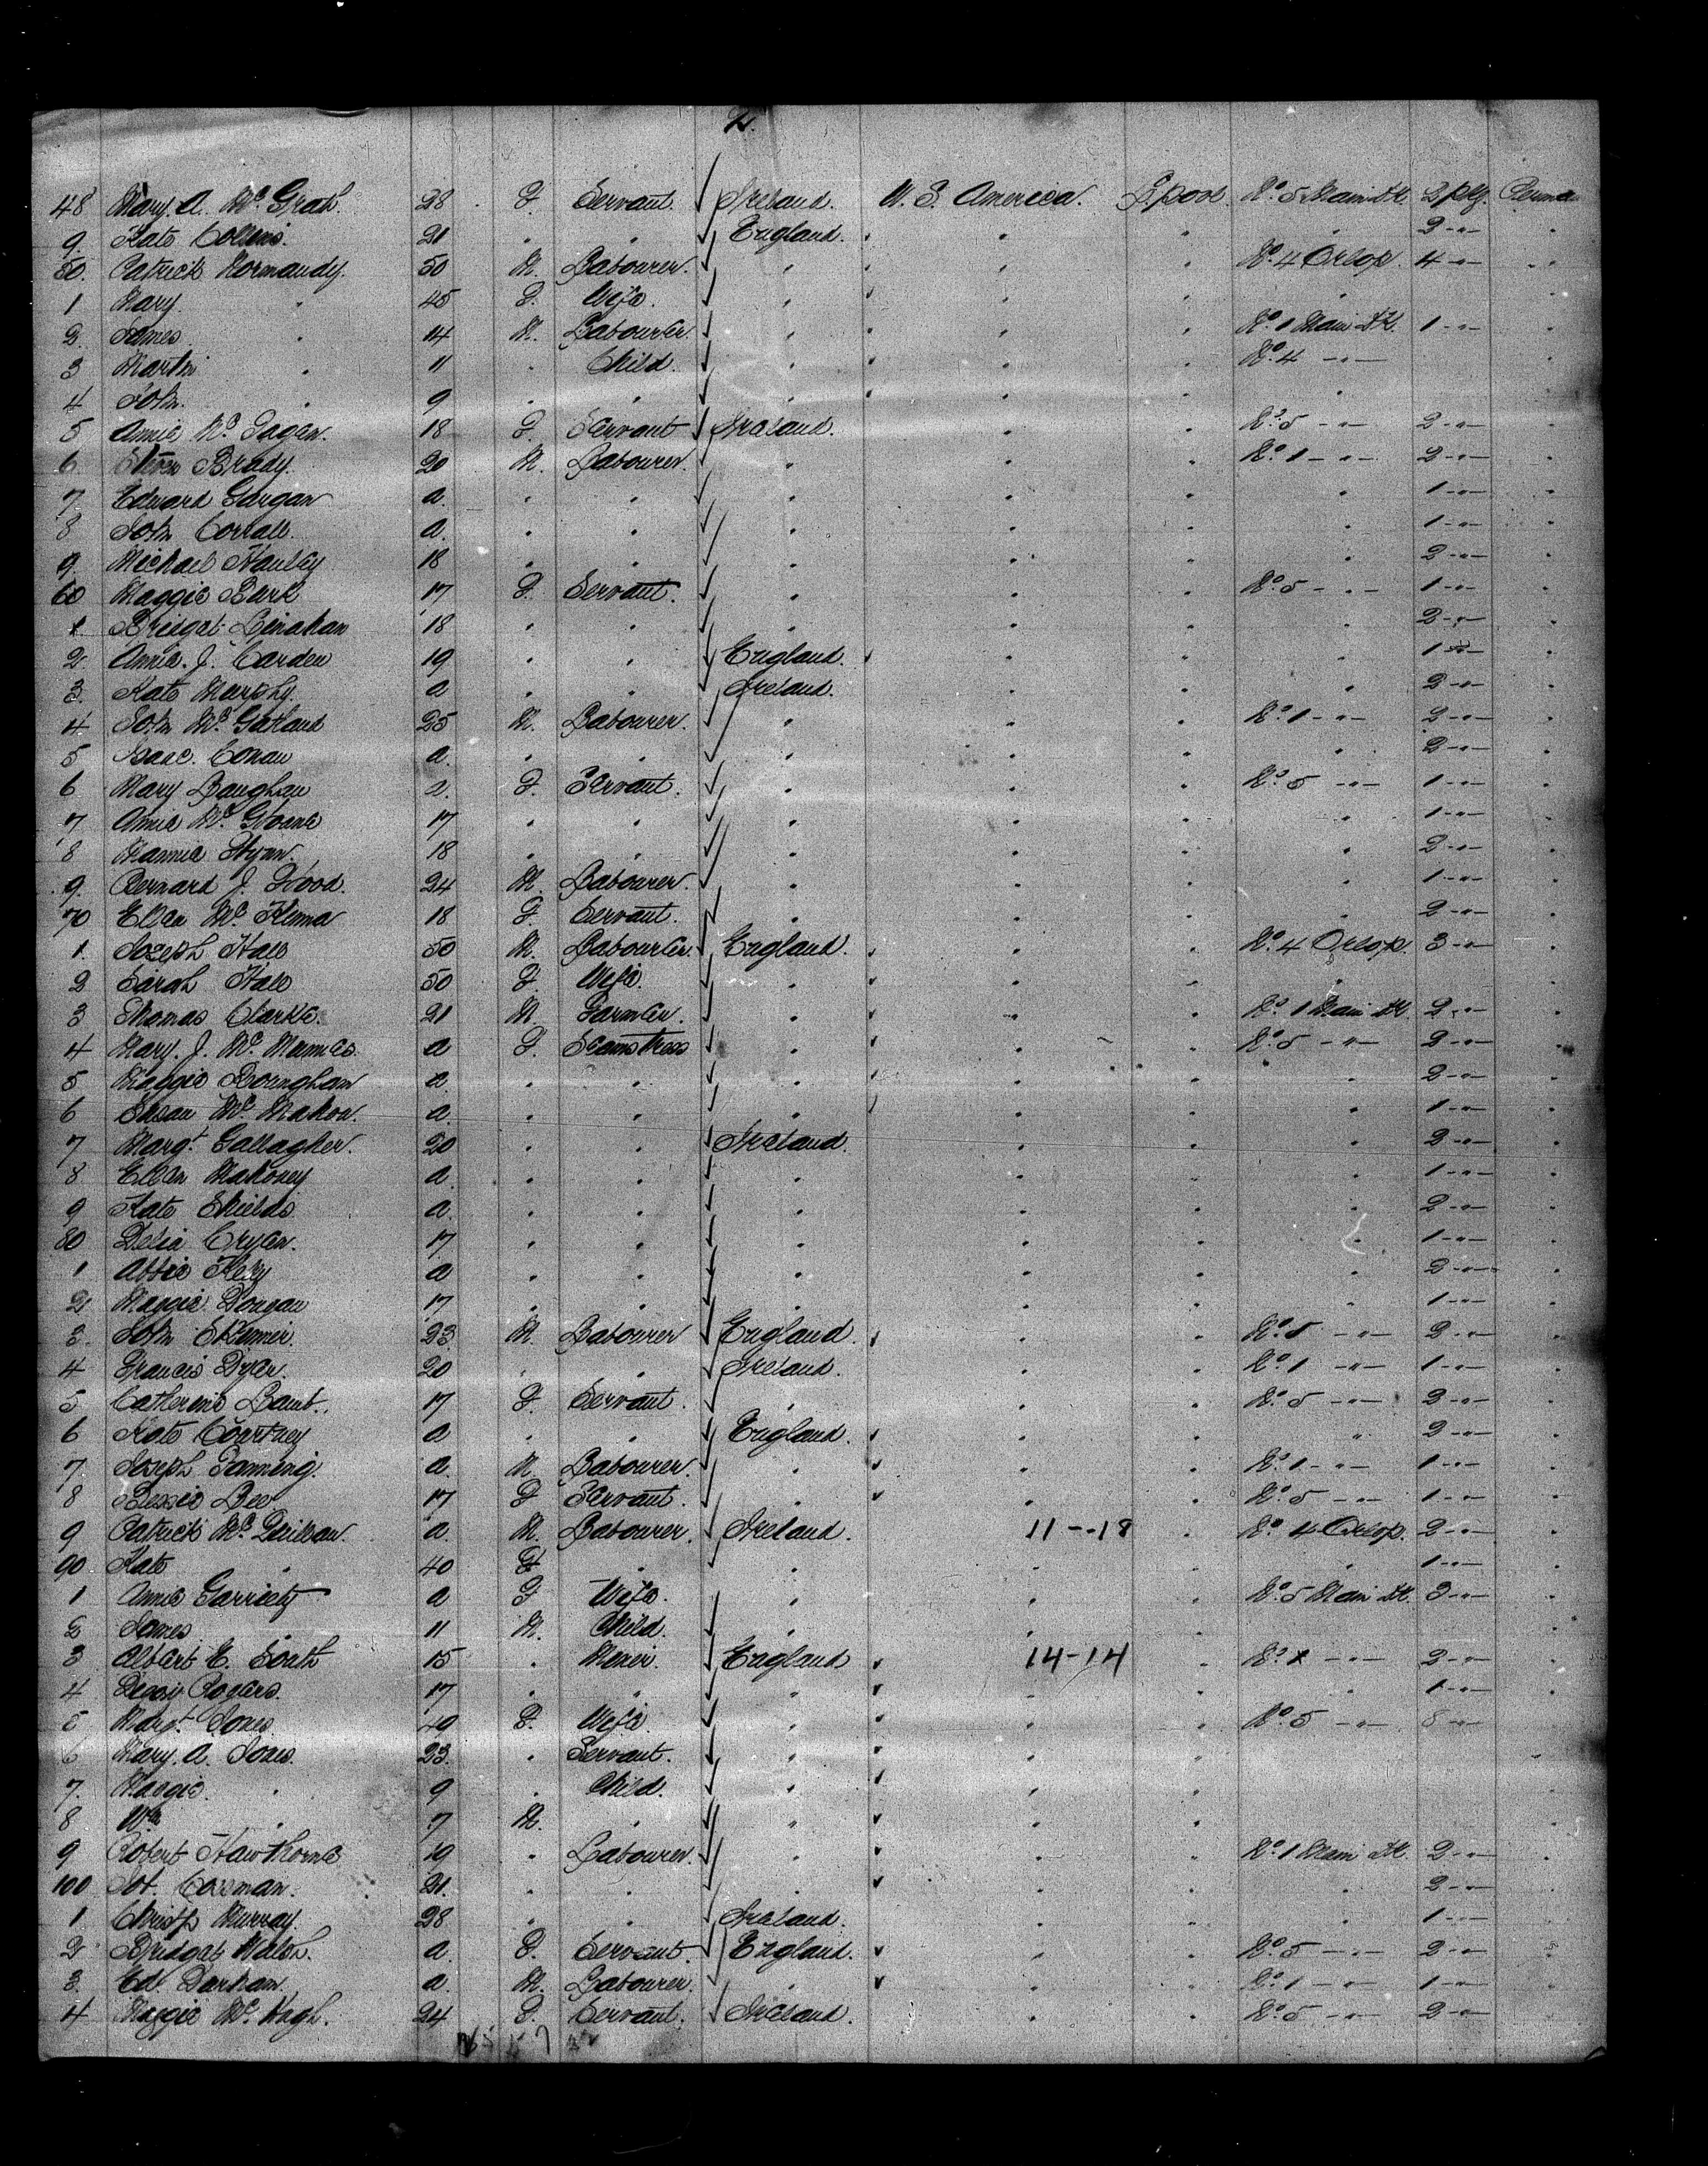 2.
48 Mary. A. Mc Grah. 28 F. Servant. Ireland. U. S. America. L.pool. No. 5 Main Dk. 2 pkg.
9. Kate Collins. 21 " " England. " " " 2 -"-
50. Patrick Normandy. 50 M. Labourer. " " " No. 4 Orlop. 4 -"-
1 Mary " 45 F. Wife. " " " "
2. James " 14 M. Labourer. " " " No. 1 Main Dk. 1 -"-
3 Martin " 11 " Child. " " " No. 4 -"-
4 John. " 9 " " " " " "
5 Annie Mc Gagan. 18 F. Servant Ireland. " " No. 5 -"- 2 -"-
6 Brady. 20 M. Labourer. " " " No. 1 -"- 2 -"-
7 Edward Gargan a. " " " " " " 1 -"-
8 John a. " " " " " " 1 -"-
9. Michael 18 " " " " " " 2 -"-
60 Maggie Bark 17 F. Servant. " " " No. 5 -"- 1 -"-
1 Bridget Linahan 18 " " " " " " 2 -"-
2. Annie. J. Carden 19 " " England. " " " 1 -"-
3. Kate Murphy. a " " Ireland. " " " 2 -"-
4 John Mc 25 M. Labourer. " " " No. 1 -"- 2 -"-
5 Isaac. a. " " " " " " 2 -"-
6 Mary a. F. Servant. " " " No. 5 -"- 1 -"-
7 Annie Mc 17 " " " " " " 1 -"-
8 18 " " " " " " 2 -"-
9. Bernard J. 24 M. Labourer. " " " " 1 -"-
70 Ellen Mc Kenna 18 F. Servant. " " " " 2 -"-
1. Joseph Hale 50 M. Labourer. England. " " No. 4 Orlop. 3 -"-
2 Sarah Hale 50 F. Wife. " " " "
3 Thomas Clarke. 21 M. Farmer. " " " No. 1 Main Dk. 2 -"-
4 Mary. J. Mc a F. Seamstress " " " No. 5 -"- 2 -"-
5 Maggie a. " " " " " " 2 -"-
6 Susan Mc Mahon. a. " " " " " " 1 -"-
7 Margt. Gallagher. 20 " " Ireland. " " " 2 -"-
8 Ellen Mahoney a. " " " " " " 1 -"-
9 Kate Shields a. " " " " " " 2 -"-
80 Delia Cryan. 17 " " " " " " 1 -"-
1 Abbie a " " " " " " 2 -"-
2 Maggie 17 " " " " " " 1 -"-
3. John 23. M. Labourer England. " " No. -"- 2 -"-
4 Francis Dyer. 20 " " Ireland. " " No. 1 -"- 1 -"-
5 Catherine 17 F. Servant. " " " No. 5 -"- 2 -"-
6 Kate Courtney a " " England. " " " 2 -"-
7. Joseph a. M. Labourer. " " " No. 1 -"- 1 -"-
8 Bessie Lee 17 F Servant. " " " No. 5 -"- 1 -"-
9 Patrick Mc a. M. Labourer. Ireland. 11--18 " No. 4 Orlop. 2 -"-
90 Kate " 40 F " " " " " 1 -"-
1 Annie Garriety a F Wife. " " " No. 5 Main Dk. 3 -"-
2 James " 11 M. Child. " " " "
3 Albert E. South 15 " Miner. England 14-14 " No. -"- 2 -"-
4 Rogers. 17 " " " " " " 1 -"-
5 Margt. Jones 40 F. Wife. " " " No. 5 -"- 8 -"-
6 Mary. A. Jones. 23. " Servant. " " "
7. Maggie. " 9 " Child. " " "
8 Wm " 7 M. " " " "
9 Robert Hawthorne 19 " Labourer. " " " No. 1 Main Dk. 2 -"-
100 Cosman. 21. " " " " " " 2 -"-
1 Murray. 28 " " Ireland. " " " 1 -"-
2 Bridget Walsh. a. F. Servant. England. " " No. 5 -"- 2 -"-
3. Ed. a. M. Labourer. " " " No. 1 -"- 1 -"-
4 Maggie Mc Hugh. 24 F. Servant. Ireland. " " No. 5 -"- 2 -"-